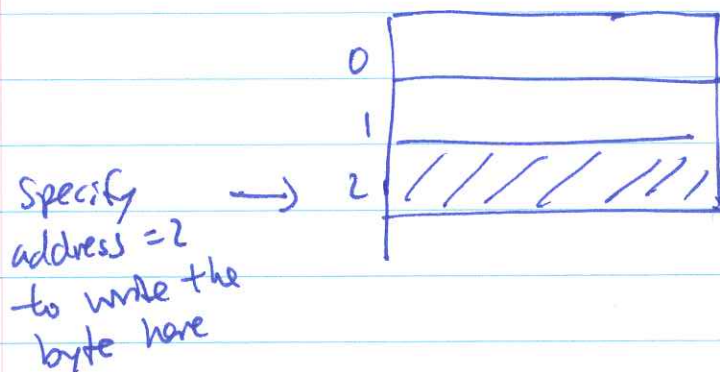 0
1
Specify → 2
address = 2
to write the
byte here